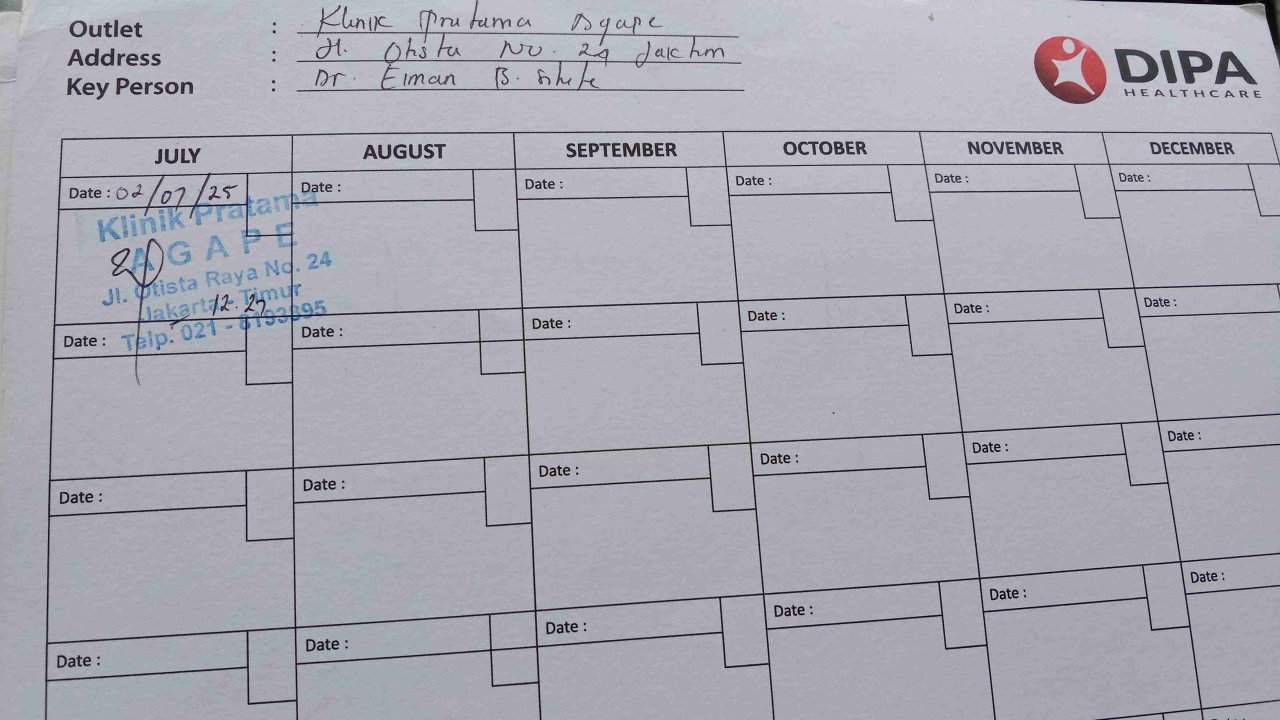 Outlet : Klinik Pratama Agape
Address : Jl. Otista No. 24 Jaktim
Key Person : Dr. Eiman B.
DIPA
HEALTHCARE
JULY AUGUST SEPTEMBER OCTOBER NOVEMBER DECEMBER
Date : 02/07/25 Date : Date : Date : Date : Date :
Klinik Pratama
AGAPE
Jl. Otista Raya No. 24
Jakarta - Timur
12.27
Telp. 021 - 8193395
Date : Date : Date : Date : Date : Date :
Date : Date : Date : Date : Date : Date :
Date : Date : Date : Date : Date : Date :